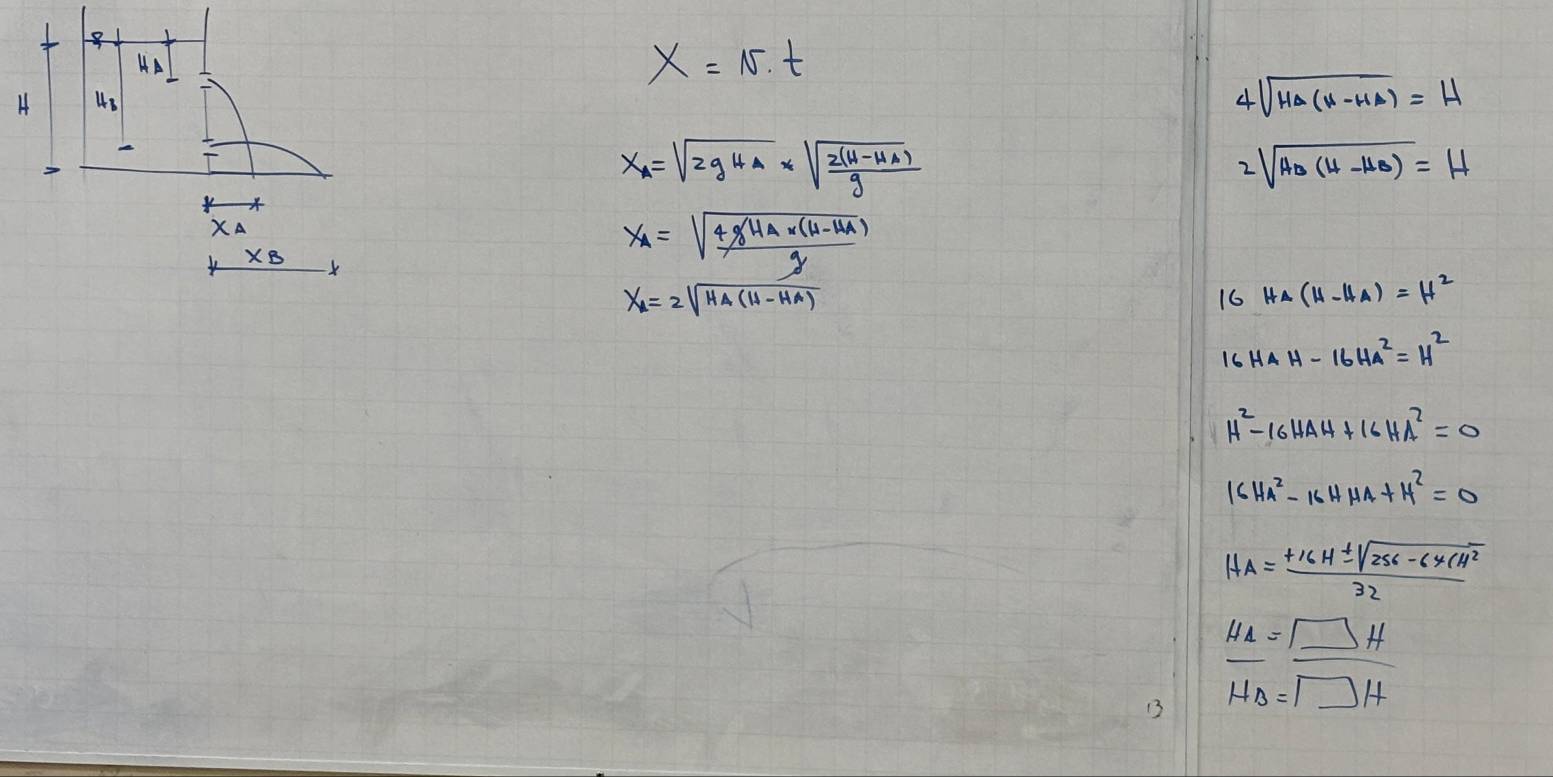 H
HB
HA
XA
XB
X = v.t
XA = √2gHA × √2(H-HA)/g
XA = √4gHA×(H-HA)/g
XA = 2√HA(H-HA)
4√HA(H-HA) = H
2√HB(H-HB) = H
16 HA(H-HA) = H²
16HAH - 16HA² = H²
H² - 16HAH + 16HA² = 0
16HA² - 16HHA + H² = 0
HA = +16H ± √256-64(H²/32
HA = H
HB = H
13